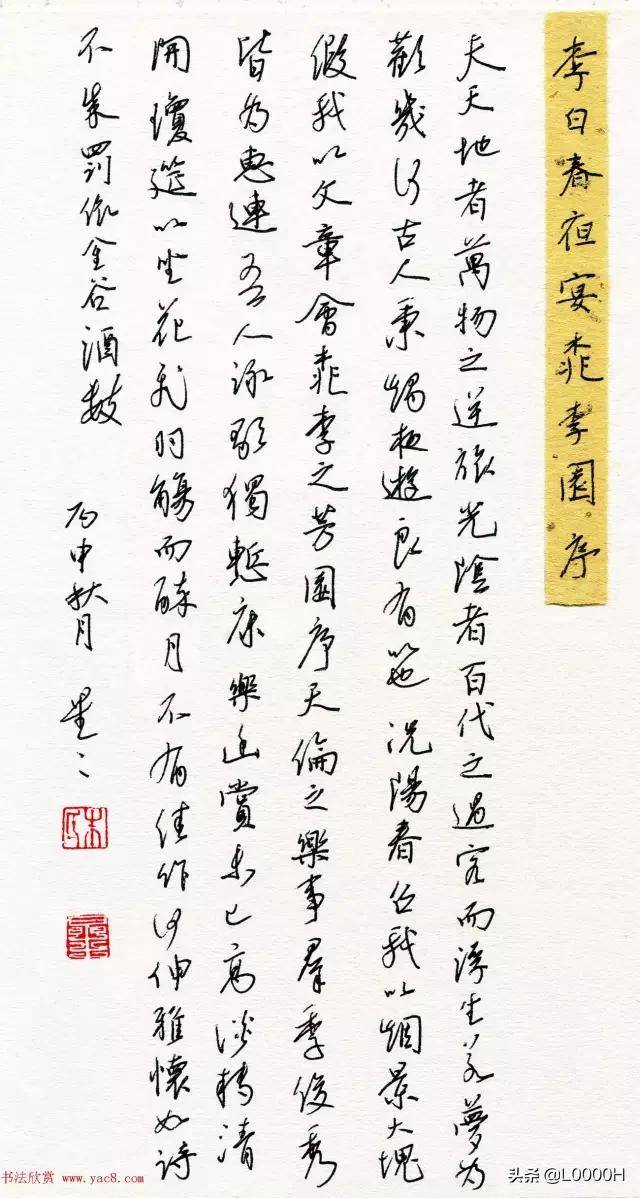 李白春夜宴桃李園序
夫天地者萬物之逆旅光陰者百代之過客而浮生若夢為
歡幾何古人秉燭夜遊良有以也況陽春召我以烟景大塊
假我以文章會桃李之芳園序天倫之樂事羣季俊秀
皆為惠連吾人詠歌獨慚康樂幽賞未已高談轉清
開瓊筵以坐花飛羽觴而醉月不有佳作何伸雅懷如詩
不成罰依金谷酒數
丙申秋月 星〻
书法欣赏 www.yac8.com
头条 @L0000H